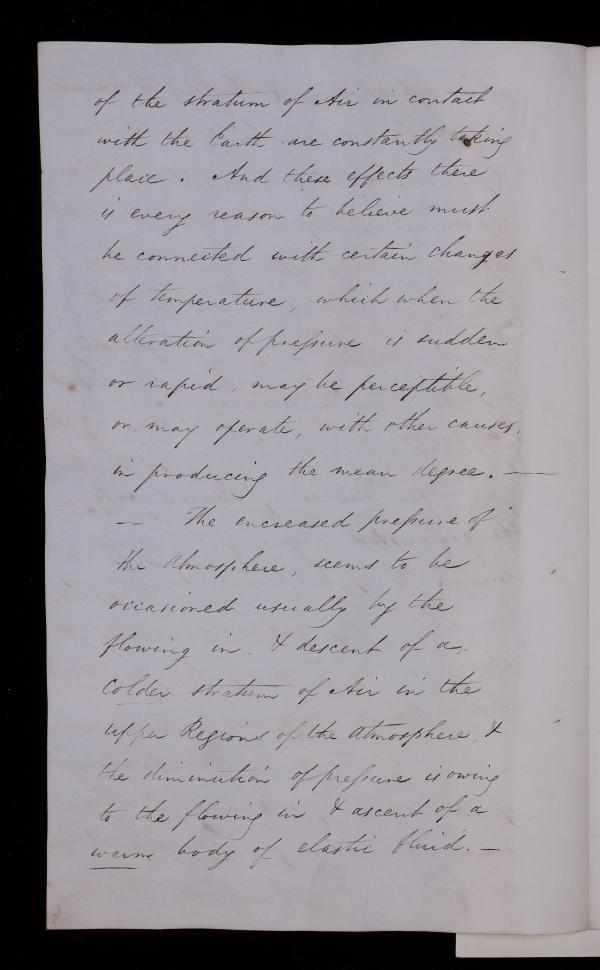 of the stratum of Air in contact
with the Earth are constantly taking
place. And these effects there
is every reason to believe must
be connected with certain changes
of temperature, which when the
alteration of preſsure is sudden
or rapid, may be perceptible,
or may operate, with other causes,
in producing the mean degree. —
— The encreased preſsure of
the Atmosphere, seems to be
occasioned usually by the
flowing in, & descent of a,
colder stratum of Air in the
upper Regions of the Atmosphere, &
the diminution of preſsure is owing
to the flowing in & ascent of a
warm body of elastic fluid. —